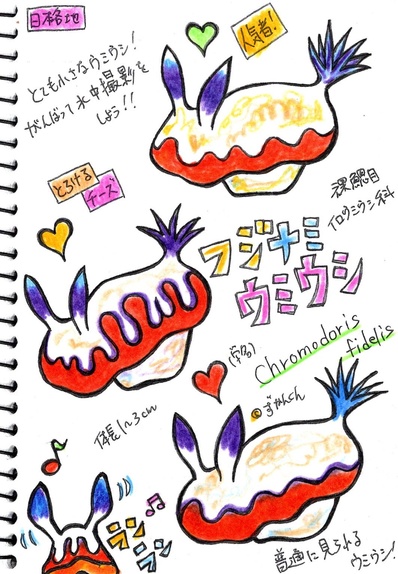 日格地
とても小さなウミウシ!
がんばって水中撮影を
しよう!!
人気者!
裸鰓目
イロウミウシ科
とろける
チーズ
フジナミ
ウミウシ
(学名)
Chromodoris
fidelis
体長1~3cm
ラン
ラン
普通に見られる
ウミウシ!